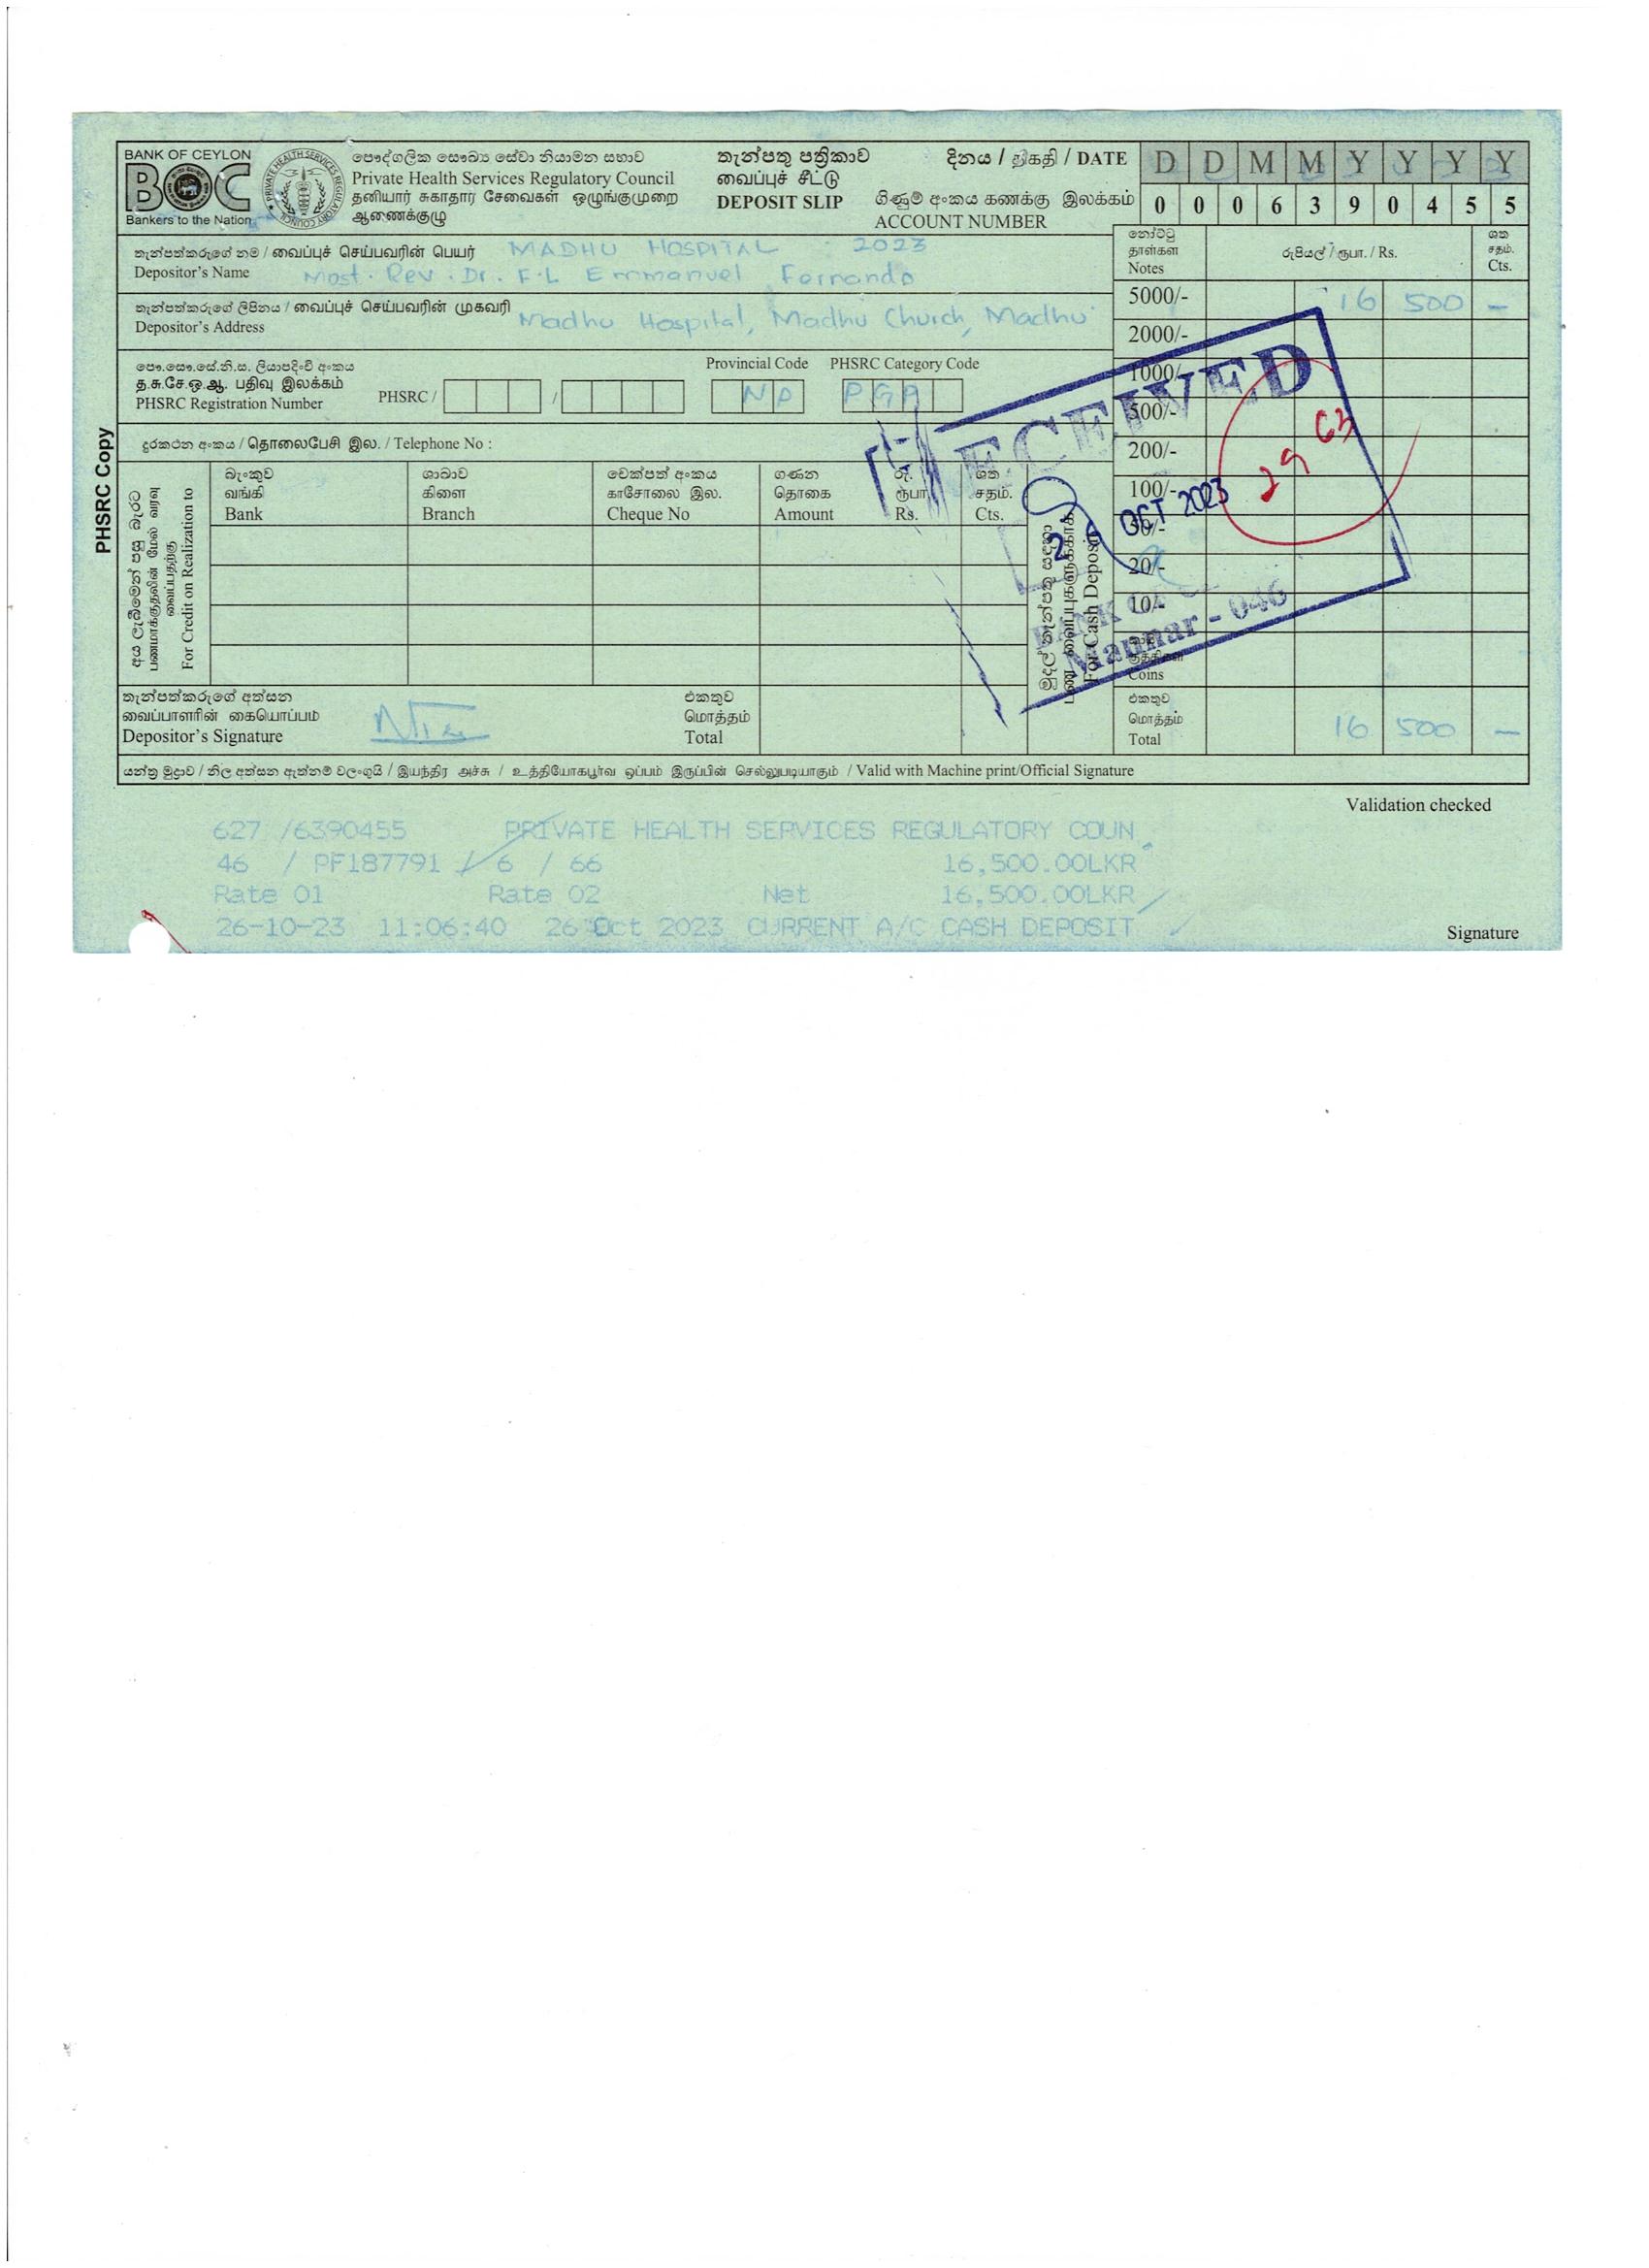 BANK OF CEYLON
BOC
Bankers to the Nation
PRIVATE HEALTH SERVICES REGULATORY COUNCIL
පෞද්ගලික සෞඛ්‍ය සේවා නියාමන සභාව
Private Health Services Regulatory Council
தனியார் சுகாதார சேவைகள் ஒழுங்குமுறை
ஆணைக்குழு
තැන්පතු පත්‍රිකාව
வைப்புச் சீட்டு
DEPOSIT SLIP
දිනය / திகதி / DATE D D M M Y Y Y Y
ගිණුම් අංකය கணக்கு இலக்கம்
ACCOUNT NUMBER
0 0 0 6 3 9 0 4 5 5
තැන්පත්කරුගේ නම / வைப்புச் செய்பவரின் பெயர் MADHU HOSPITAL 2023
Depositor's Name Most. Rev. Dr. F.L Emmanuel Fernando
තැන්පත්කරුගේ ලිපිනය / வைப்புச் செய்பவரின் முகவரி
Depositor's Address Madhu Hospital, Madhu Church, Madhu
පෞ.සෞ.සේ.නි.ස. ලියාපදිංචි අංකය
த.சு.சே.ஒ.ஆ. பதிவு இலக்கம்
PHSRC Registration Number PHSRC / /
Provincial Code NP
PHSRC Category Code PGA
දුරකථන අංකය / தொலைபேசி இல. / Telephone No :
PHSRC Copy
අය ලැබීමෙන් පසු බැරට
பணமாக்குதலின் மேல் வரவு
வைப்பதற்கு
For Credit on Realization to
බැංකුව ශාඛාව චෙක්පත් අංකය ගණන රු. ශත
வங்கி கிளை காசோலை இல. தொகை ரூபா சதம்.
Bank Branch Cheque No Amount Rs. Cts.
මුදල් තැන්පතු සඳහා
பண வைப்புகளுக்காக
For Cash Deposit
නෝට්ටු
தாள்கள்
Notes
රුපියල් / ரூபா. / Rs.
ශත
சதம்.
Cts.
5000/- 16 500 –
2000/-
1000/-
500/-
200/-
100/-
50/-
20/-
10/-
Coins
RECEIVED
OCT 2023
Mannar - 046
තැන්පත්කරුගේ අත්සන
வைப்பாளரின் கையொப்பம்
Depositor's Signature
එකතුව
மொத்தம்
Total
එකතුව
மொத்தம்
Total 16 500 –
යන්ත්‍ර මුද්‍රාව / නිල අත්සන ඇත්නම් වලංගුයි / இயந்திர அச்சு / உத்தியோகபூர்வ ஒப்பம் இருப்பின் செல்லுபடியாகும் / Valid with Machine print/Official Signature
Validation checked
627 /6390455 PRIVATE HEALTH SERVICES REGULATORY COUN
46 / PF187791 / 6 / 66 16,500.00LKR
Rate 01 Rate 02 Net 16,500.00LKR
26-10-23 11:06:40 26 Oct 2023 CURRENT A/C CASH DEPOSIT
Signature